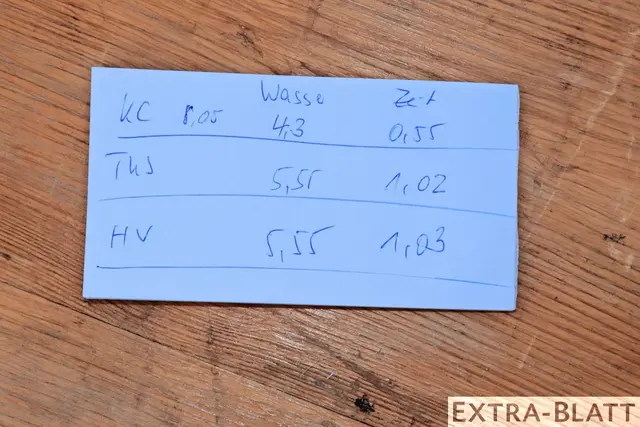 Wasse Zeit
KC 8,05 4,3 0,55
THS 5,55 1,02
HV 5,55 1,03
EXTRA-BLATT